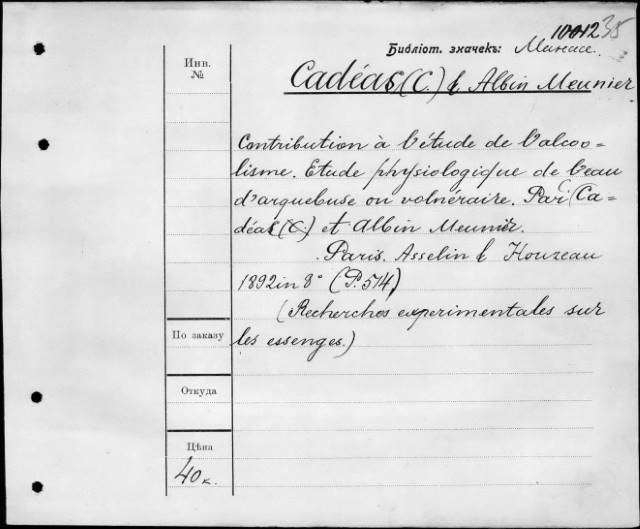 1001235
Библіот. значекъ: Манасе.
Инв.
№
Cadéac (C.) & Albin Meunier
Contribution à l'étude de l'alcoo=
lisme. Etude physiologique de l'eau
d'arquebuse ou vulnéraire. Par C. (Ca=
déac (C.) et Albin Meunier.
Paris. Asselin & Houzeau
1892 in 8° (P. 514)
(Recherches experimentales sur
les essenges.)
По заказу
Откуда
Цѣна
40 к.